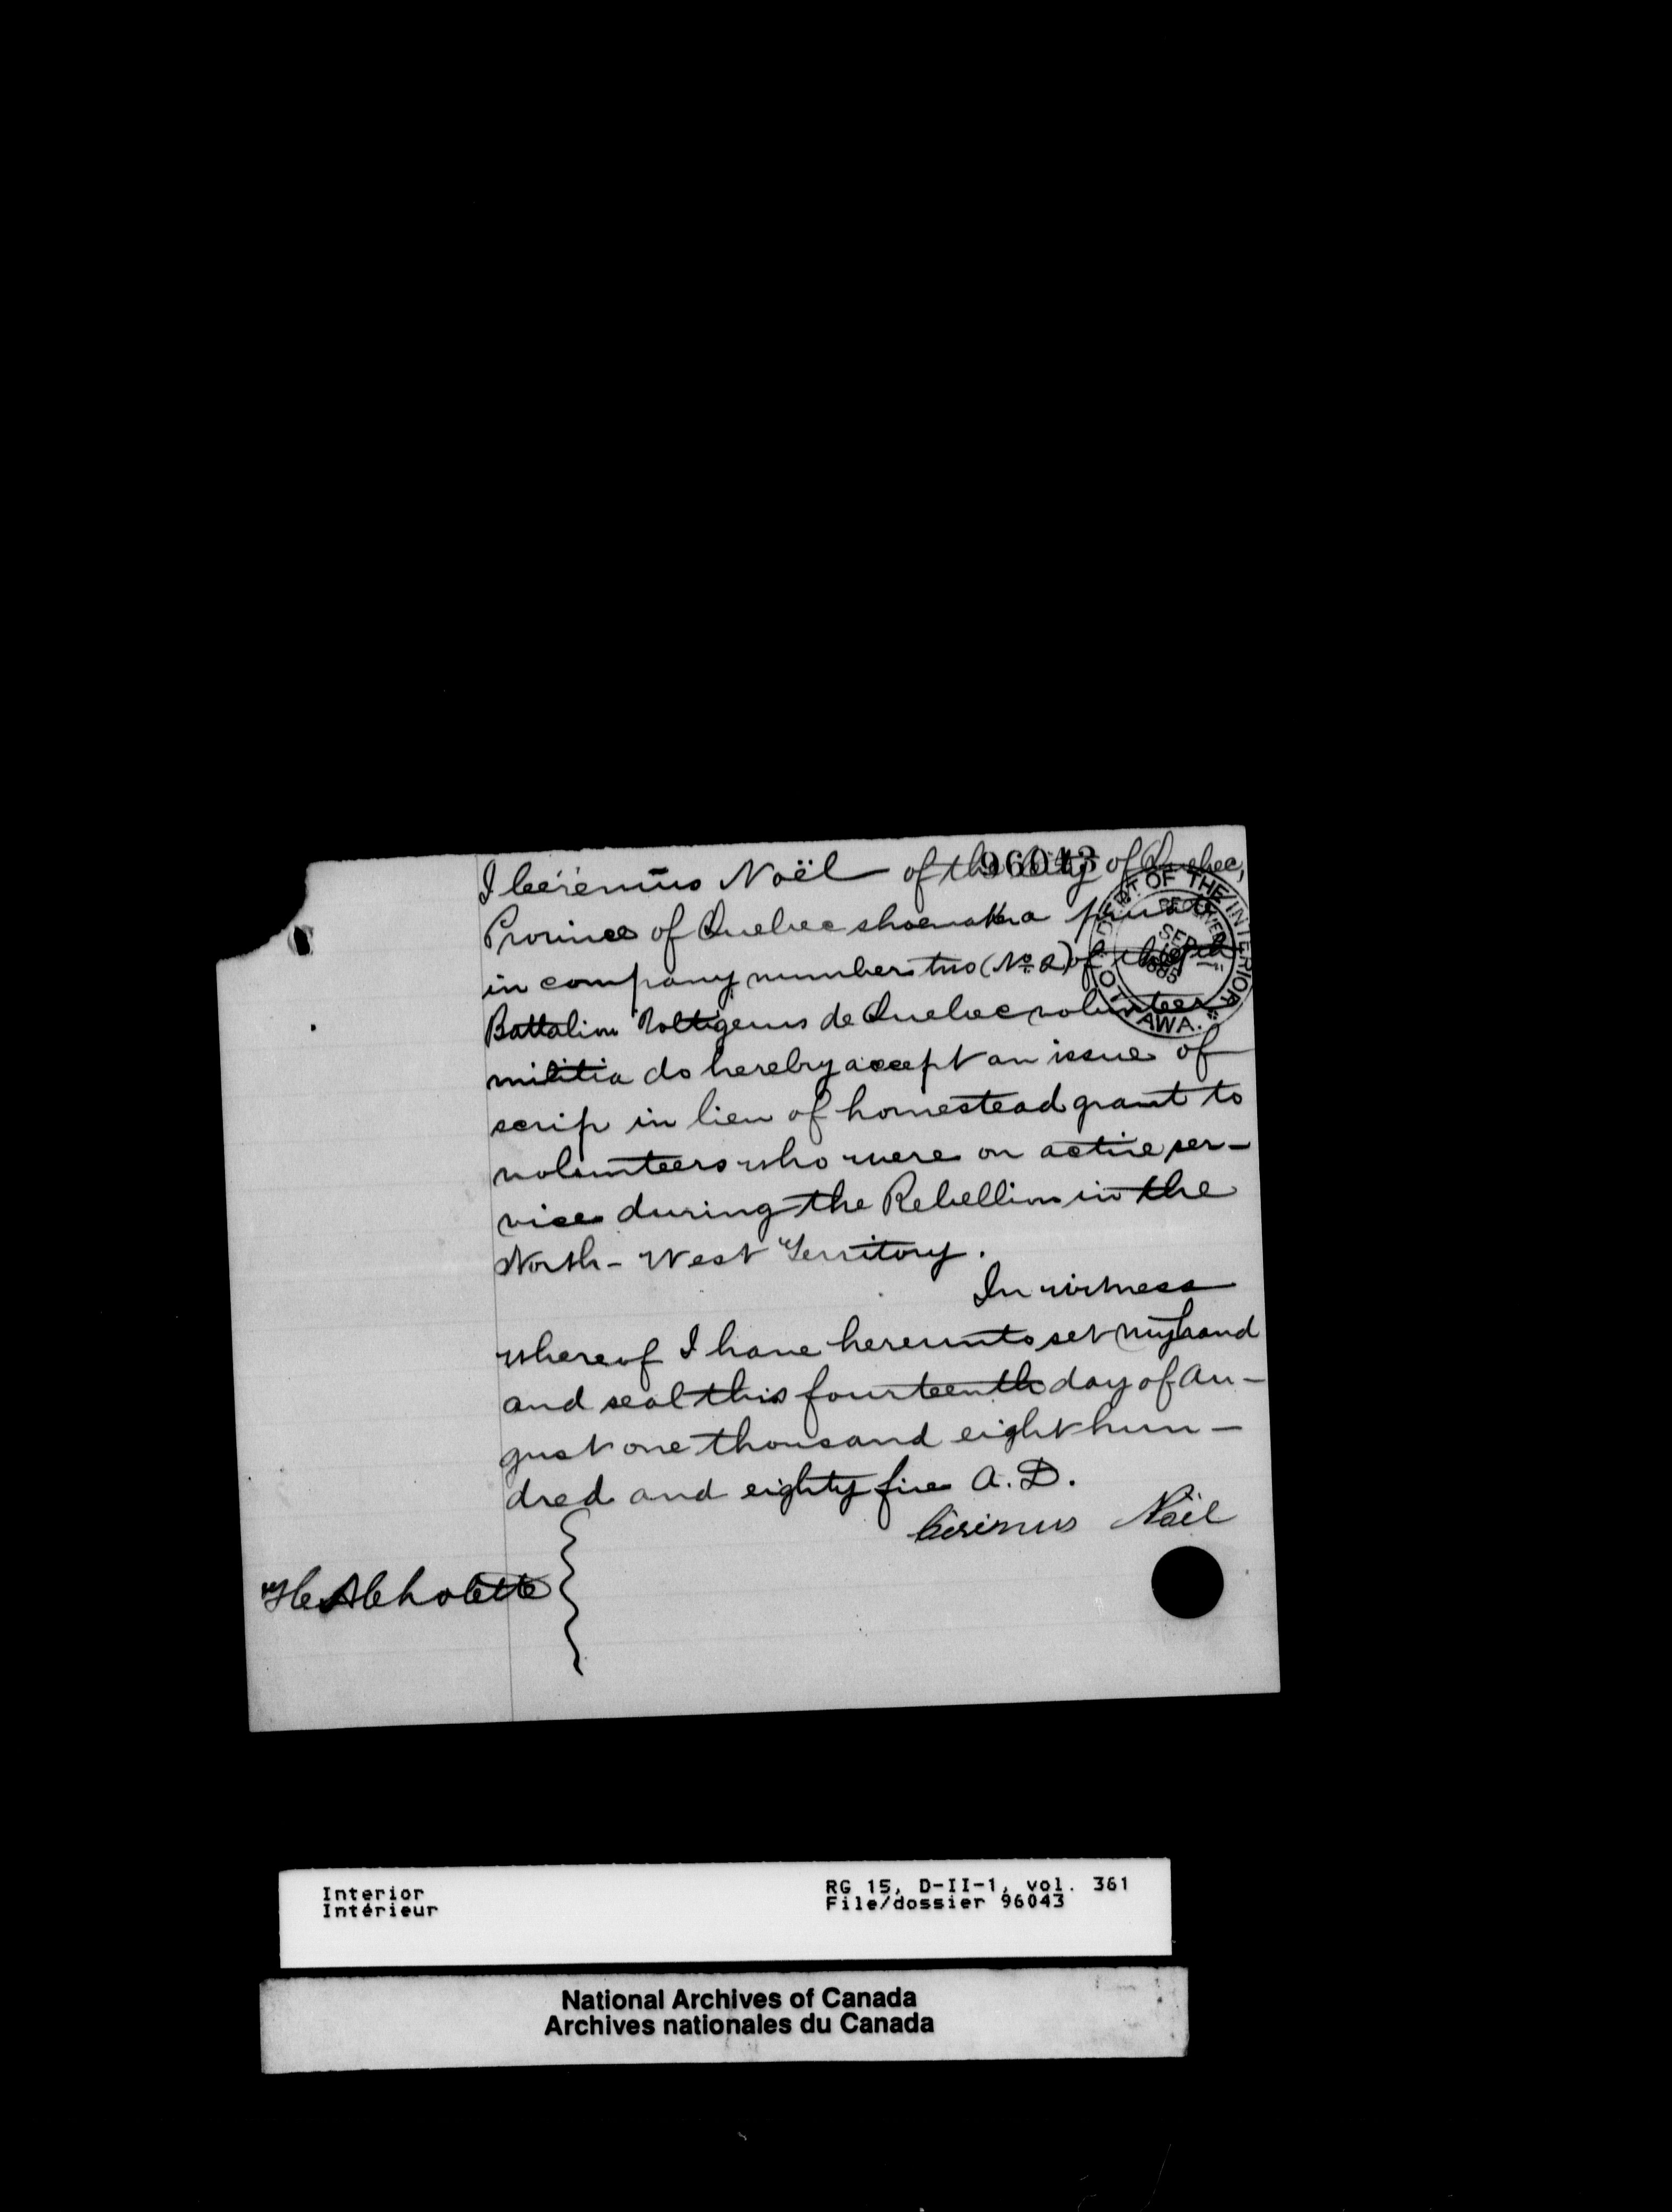 I Cérémus Noël of the City of Quebec,
96043
Province of Quebec shoemaker a private
in company number two (No. 2) of the 9th
Battalion Voltigeurs de Quebec volunteer
militia do hereby accept an issue of
scrip in lieu of homestead grant to
volunteers who were on active ser-
vice during the Rebellion in the
North-West Territory.
In witness
whereof I have hereunto set my hand
and seal this fourteenth day of Au-
gust one thousand eight hun-
dred and eighty five A.D.
Noël
DEPT. OF THE INTERIOR
RECEIVED
SEP
1885
OTTAWA.
Interior
Intérieur
RG 15, D-II-1, vol. 361
File/dossier 96043
National Archives of Canada
Archives nationales du Canada